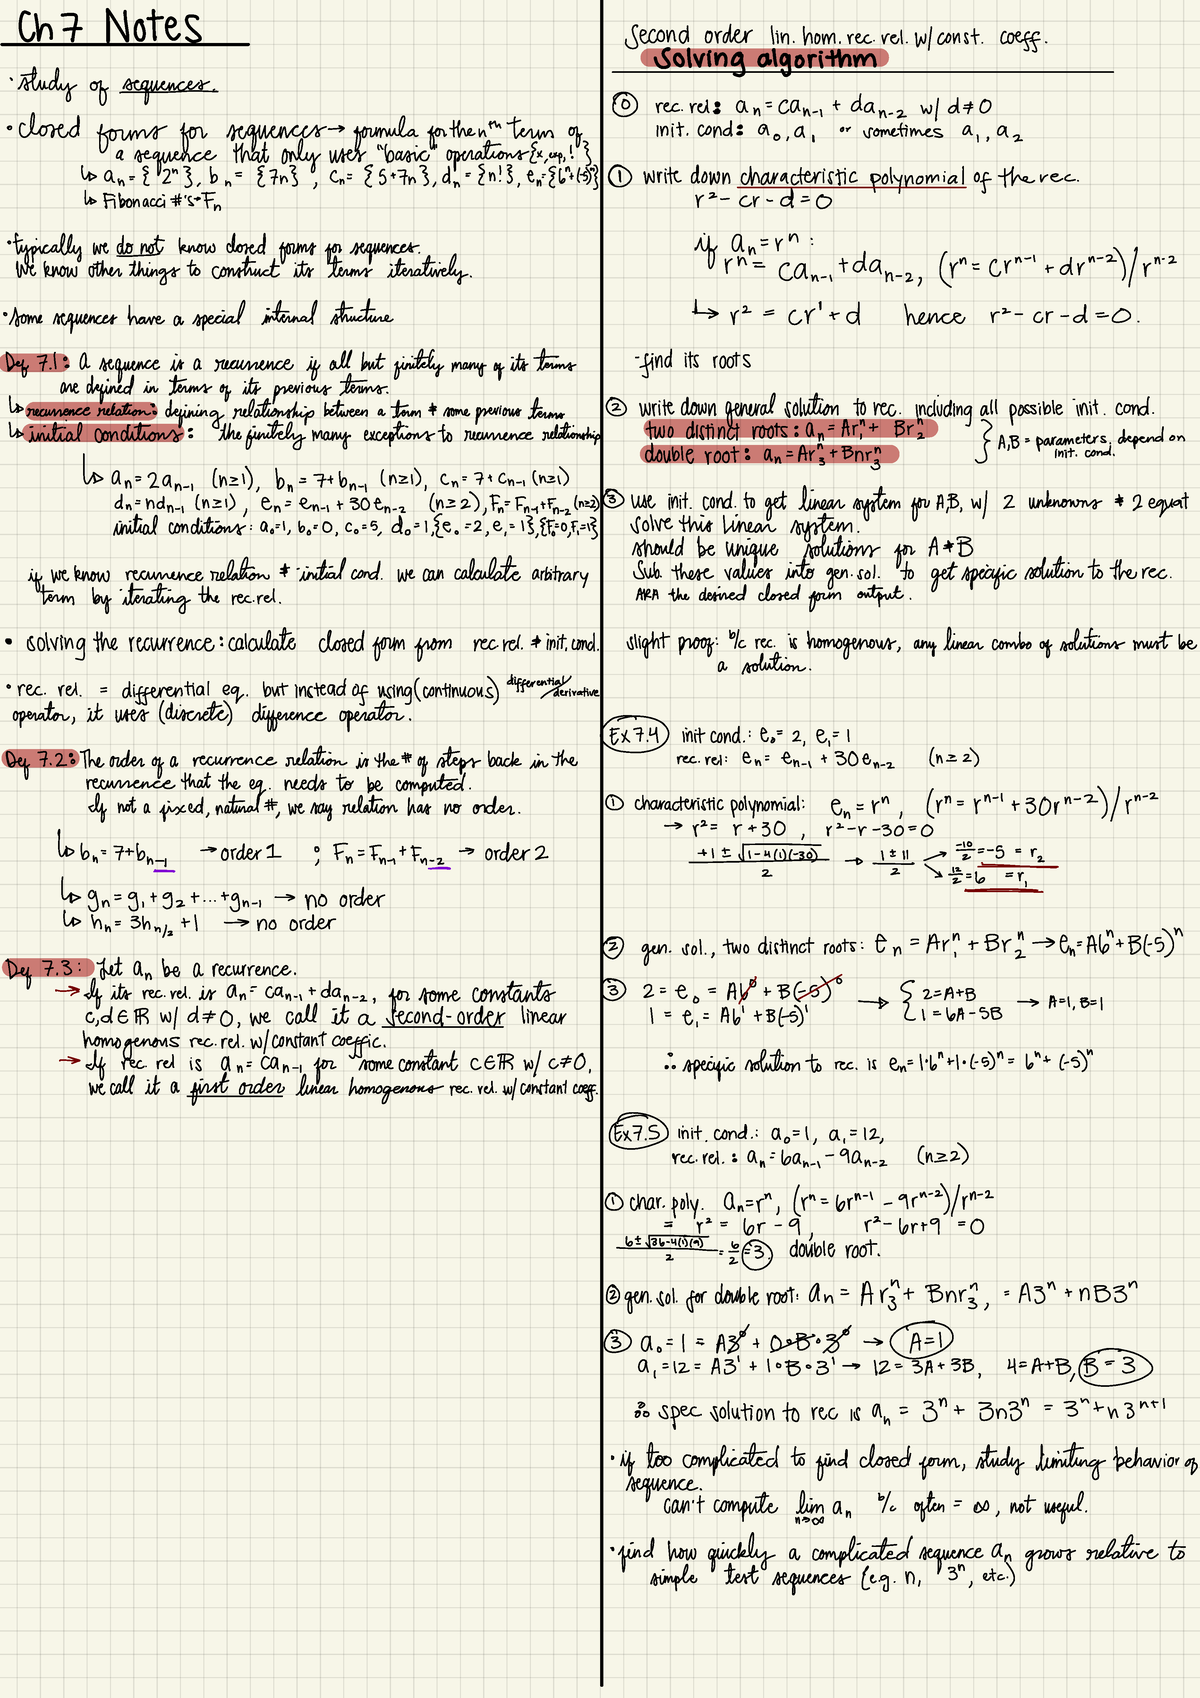 Ch 7 Notes
• study of sequences.
• closed forms for sequences → formula for the nᵗʰ term of
a sequence that only uses "basic" operations {x, exp, ! }
↳ aₙ = {2ⁿ}, bₙ = {7n}, cₙ = {5+7n}, dₙ = {n!}, eₙ = {6ⁿ+(-5)ⁿ}
↳ Fibonacci #'s → Fₙ
• typically we do not know closed forms for sequences.
We know other things to construct its terms iteratively.
• some sequences have a special internal structure
Def 7.1: A sequence is a recurrence if all but finitely many of its terms
are defined in terms of its previous terms.
↳ recurrence relation: defining relationship between a term & some previous terms
↳ initial conditions: the finitely many exceptions to recurrence relationship
↳ aₙ = 2aₙ₋₁ (n≥1), bₙ = 7+bₙ₋₁ (n≥1), cₙ = 7+cₙ₋₁ (n≥1)
dₙ = ndₙ₋₁ (n≥1), eₙ = eₙ₋₁ + 30eₙ₋₂ (n≥2), Fₙ = Fₙ₋₁+Fₙ₋₂ (n≥2)
initial conditions: a₀=1, b₀=0, c₀=5, d₀=1, {e₀=2, e₁=1}, {F₀=0, F₁=1}
if we know recurrence relation & initial cond. we can calculate arbitrary
term by iterating the rec. rel.
• solving the recurrence: calculate closed form from rec rel. & init. cond.
• rec. rel. = differential eq. but instead of using (continuous) differential/derivative
operator, it uses (discrete) difference operator.
Def 7.2: The order of a recurrence relation is the # of steps back in the
recurrence that the eq. needs to be computed.
If not a fixed, natural #, we say relation has no order.
↳ bₙ = 7+bₙ₋₁ → order 1 ; Fₙ = Fₙ₋₁ + Fₙ₋₂ → order 2
↳ gₙ = g₁ + g₂ + ... + gₙ₋₁ → no order
↳ hₙ = 3hₙ/₂ + 1 → no order
Def 7.3: Let aₙ be a recurrence.
→ If its rec. rel. is aₙ = caₙ₋₁ + daₙ₋₂, for some constants
c,d ∈ ℝ w/ d≠0, we call it a second-order linear
homogenous rec. rel. w/ constant coeffic.
→ If rec. rel is aₙ = caₙ₋₁ for some constant c∈ℝ w/ c≠0,
we call it a first order linear homogenous rec. rel. w/ constant coeff.
Second order lin. hom. rec. rel. w/ const. coeff.
Solving algorithm
⓪ rec. rel: aₙ = caₙ₋₁ + daₙ₋₂ w/ d≠0
init. cond: a₀, a₁ or sometimes a₁, a₂
① write down characteristic polynomial of the rec.
r² - cr - d = 0
if aₙ = rⁿ :
rⁿ = caₙ₋₁ + daₙ₋₂, (rⁿ = crⁿ⁻¹ + drⁿ⁻²)/rⁿ⁻²
↳ r² = cr¹ + d hence r² - cr - d = 0.
- find its roots
② write down general solution to rec. including all possible init. cond.
two distinct roots: aₙ = Ar₁ⁿ + Br₂ⁿ
double root: aₙ = Ar₃ⁿ + Bnr₃ⁿ
} A,B = parameters, depend on
init. cond.
③ use init. cond. to get linear system for A,B, w/ 2 unknowns & 2 equat
solve this linear system.
should be unique solutions for A & B
Sub. these values into gen. sol. to get specific solution to the rec.
AKA the desired closed form output.
slight proof: b/c rec. is homogenous, any linear combo of solutions must be
a solution.
Ex 7.4 init cond.: e₀ = 2, e₁ = 1
rec. rel: eₙ = eₙ₋₁ + 30eₙ₋₂ (n≥2)
① characteristic polynomial: eₙ = rⁿ, (rⁿ = rⁿ⁻¹ + 30rⁿ⁻²)/rⁿ⁻²
→ r² = r + 30, r² - r - 30 = 0
+1 ± √(1-4(1)(-30)) / 2 → 1 ± 11 / 2 → -10/2 = -5 = r₂
→ 12/2 = 6 = r₁
② gen. sol., two distinct roots: eₙ = Ar₁ⁿ + Br₂ⁿ → eₙ = A6ⁿ + B(-5)ⁿ
③ 2 = e₀ = A6⁰ + B(-5)⁰ → { 2 = A+B → A=1, B=1
1 = e₁ = A6¹ + B(-5)¹ { 1 = 6A - 5B
∴ specific solution to rec. is eₙ = 1·6ⁿ + 1·(-5)ⁿ = 6ⁿ + (-5)ⁿ
Ex 7.5 init. cond.: a₀ = 1, a₁ = 12,
rec. rel.: aₙ = 6aₙ₋₁ - 9aₙ₋₂ (n≥2)
① char. poly. aₙ = rⁿ, (rⁿ = 6rⁿ⁻¹ - 9rⁿ⁻²)/rⁿ⁻²
= r² = 6r - 9, r² - 6r + 9 = 0
6 ± √(36-4(1)(9)) / 2 = 6/2 = 3. double root.
② gen. sol. for double root: aₙ = Ar₃ⁿ + Bnr₃ⁿ, = A3ⁿ + nB3ⁿ
③ a₀ = 1 = A3⁰ + 0·B·3⁰ → A=1
a₁ = 12 = A3¹ + 1·B·3¹ → 12 = 3A + 3B, 4 = A+B, B = 3
∴ spec solution to rec is aₙ = 3ⁿ + 3n3ⁿ = 3ⁿ + n3ⁿ⁺¹
• if too complicated to find closed form, study limiting behavior of
sequence.
can't compute lim aₙ b/c often = ∞, not useful.
n→∞
• find how quickly a complicated sequence aₙ grows relative to
simple test sequences (e.g. n, 3ⁿ, etc.)